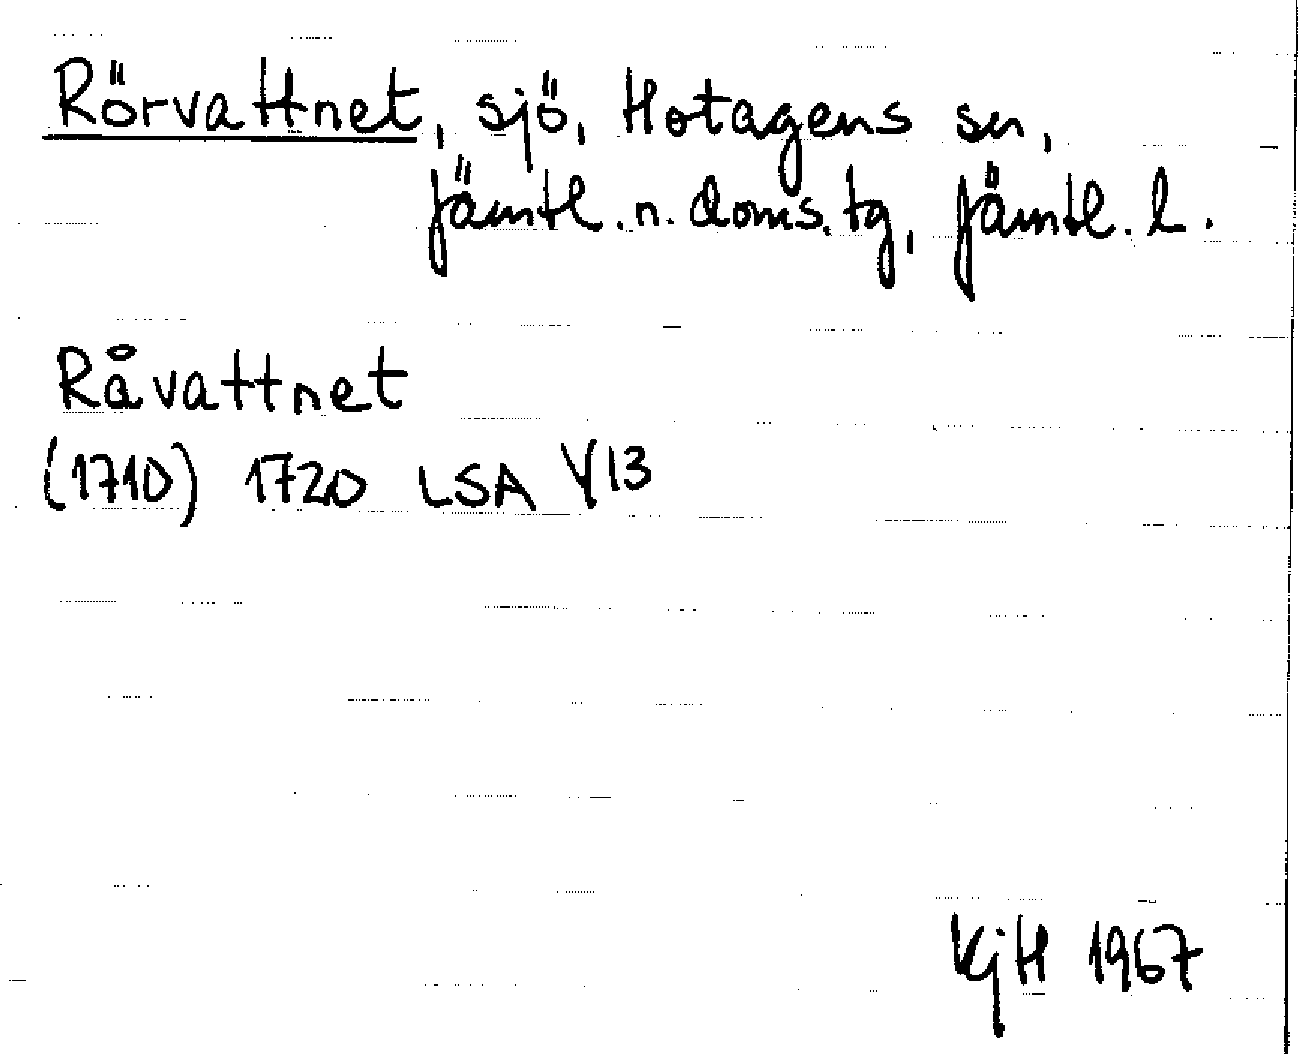 Rörvattnet, sjö, Hotagens sn,
Jämtl. n. doms. tg, Jämtl. l.
Råvattnet
(1710) 1720 LSA Y13
KjH 1967